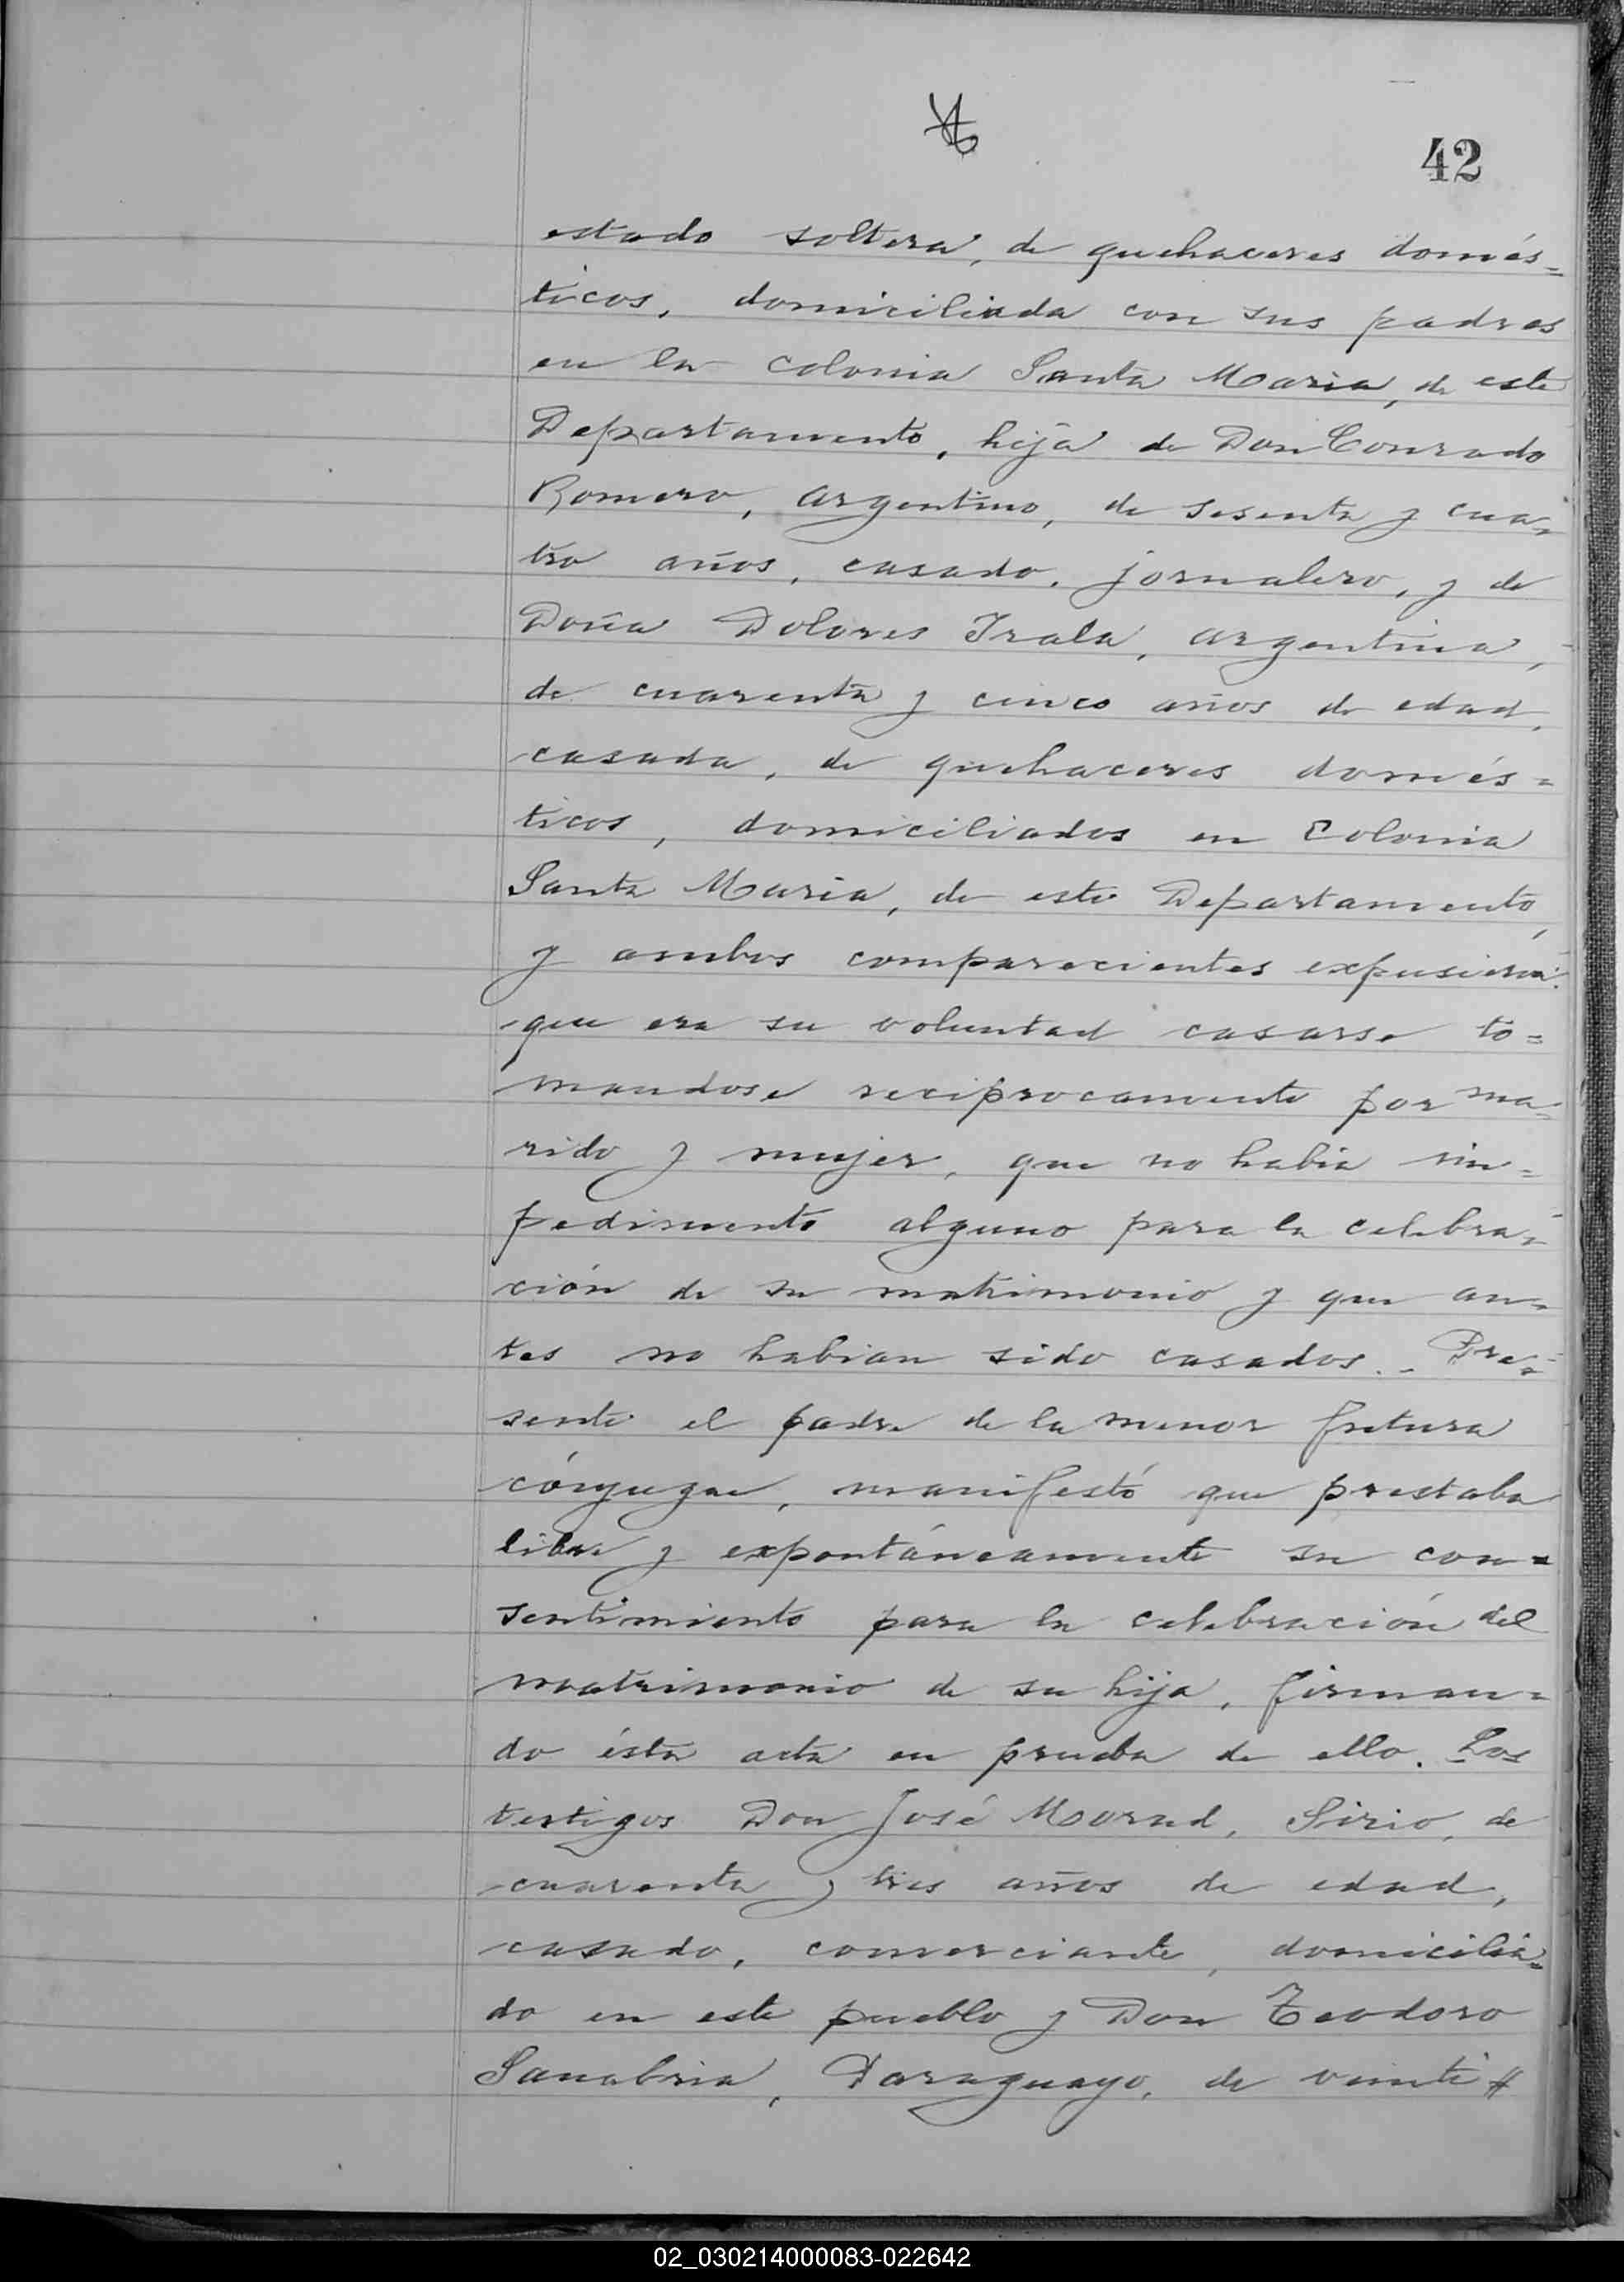 42
estado soltera, de quehaceres domés=
ticos, domiciliada con sus padres
en la colonia Santa Maria, de este
Departamento, hija de Don Conrado
Romero, argentino, de sesenta y cua-
tro años, casado, jornalero, y de
Doña Dolores Irala, argentina,
de cuarenta y cinco años de edad,
casada, de quehaceres domés=
ticos, domiciliados en Colonia
Santa Maria, de este Departamento,
y ambos comparecientes expusieron:
que era su voluntad casarse to=
mandose reciprocamente por ma-
rido y mujer, que no habia im=
pedimento alguno para la celebra-
ción de su matrimonio y que an-
tes no habian sido casados.- Pre-
sente el padre de la menor futura
cónyugue, manifestó que prestaba
libre y expontáneamente su con=
sentimiento para la celebración del
matrimonio de su hija, firman=
do ésta acta en prueba de ello. Los
testigos Don José Morad, Sirio, de
cuarenta y tres años de edad,
casado, comerciante, domicilia-
do en este pueblo y Don Teodoro
Sanabria, Paraguayo, de veinti #
02_030214000083-022642